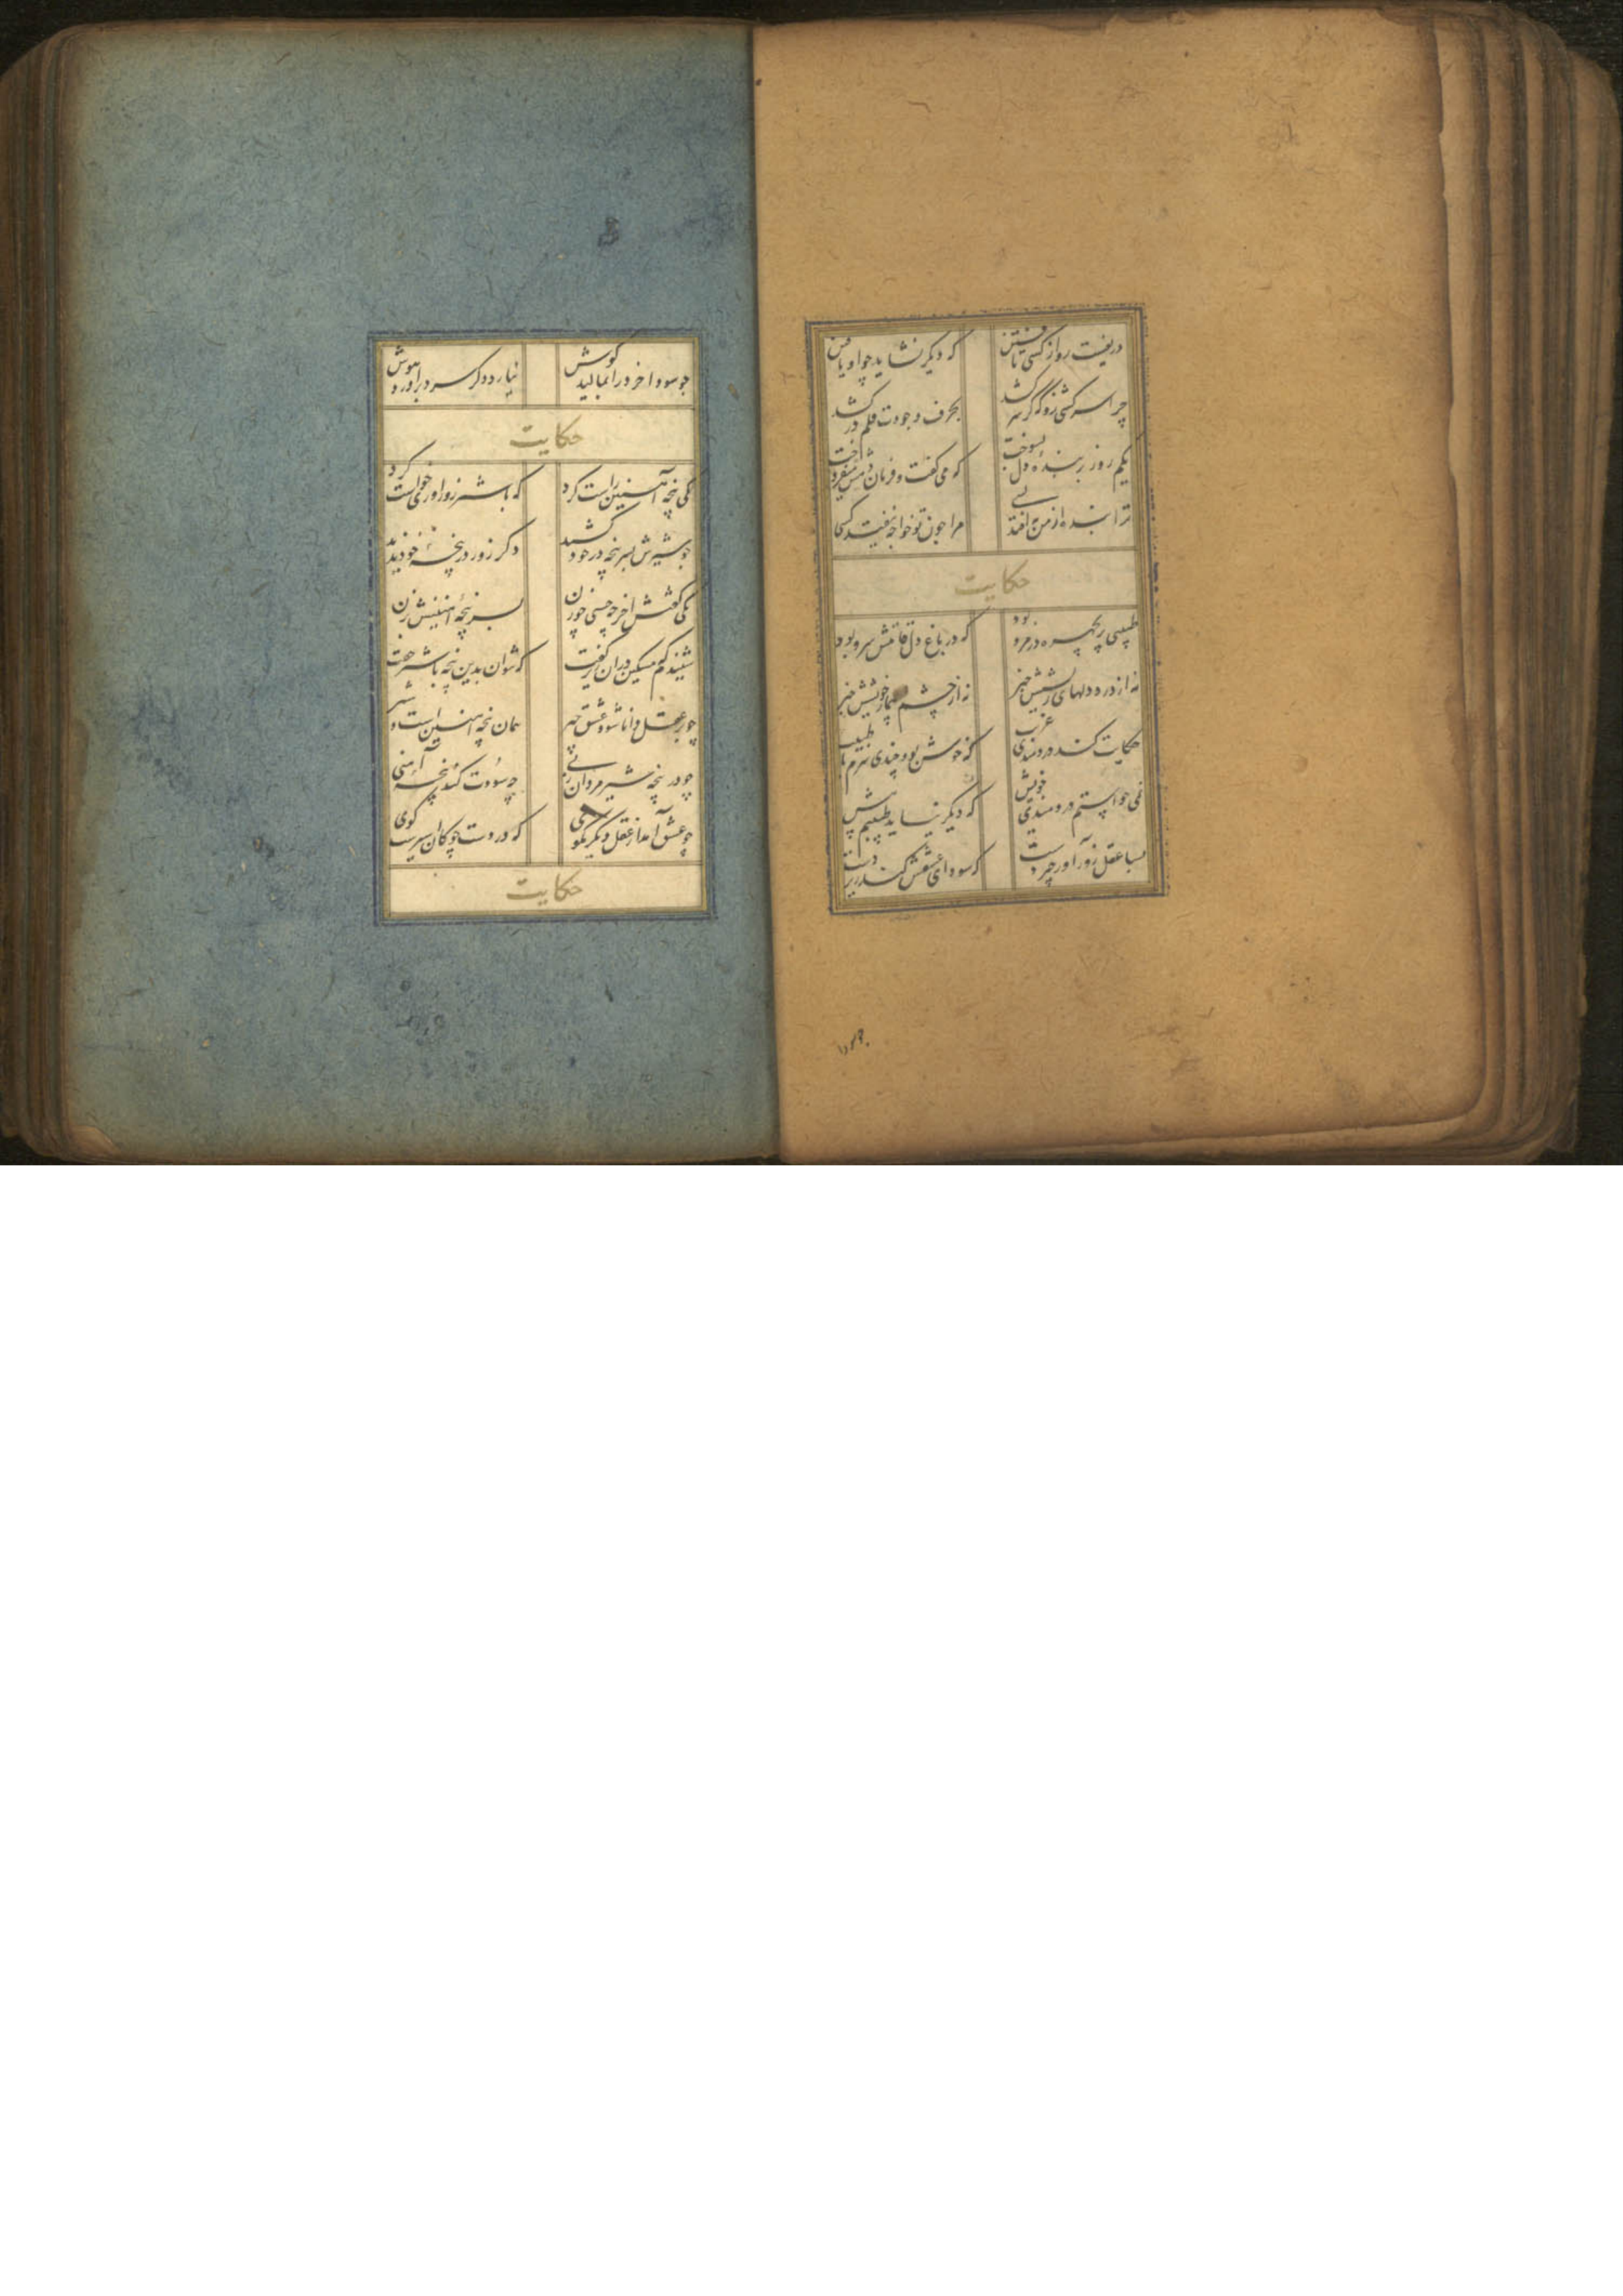 دریغست روی از کسی تافتن
که دیگر نشاید چو او یافتن
چرا سرکشی زو که گر سر کشد
بحرف وجودت قلم در کشد
یکم روز بر بنده دل بسوخت
که می گفت و فرمان دهش میفروخت
ترا بنده از من به افتد بسی
مرا چون تو خواجه نیفتد کسی
حکایت
طبیبی پریچهره در مرو بود
که در باغ دل قامتش سرو بود
نه از درد دلهای ریشش خبر
نه از چشم بیمار خویشش خبر
حکایت کند دردمندی غریب
که خوش بود چندی سرم با طبیب
نمی خواستم تندرستی خویش
که دیگر نیاید طبیبم پیش
بسا عقل زورآور چیردست
که سودای عشقش کند زیردست
چو سودا خرد را بمالید گوش
نیارد دگر سر برآورد هوش
حکایت
یکی پنجه آهنین راست کرد
که با شیر زورآوری خواست کرد
چو شیرش بسر پنجه در خود کشید
دگر زور در پنجه خود ندید
یکی گفتش آخر چه خسبی چو زن
بسر پنجه آهنینش بزن
شنیدم که مسکین در آن زیر گفت
که نتوان بدین پنجه با شیر گفت
چو بر عقل دانا شود عشق چیر
همان پنجه آهنین است و شیر
چو در پنجه شیر مردان زنی
چه سودت کند پنجه آهنی
چو عشق آمد از عقل دیگر مگوی
که در دست چوگان اسیرست گوی
حکایت